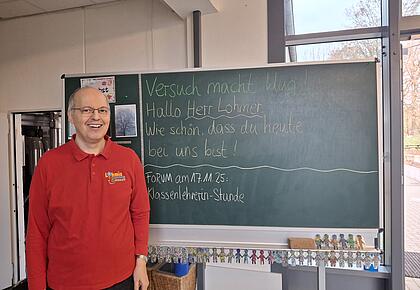 Versuch macht klug!
Hallo Herr Lohmer
Wie schön, dass du heute
bei uns bist!
FORUM am 17.11.25:
Klassenlehrerin-Stunde